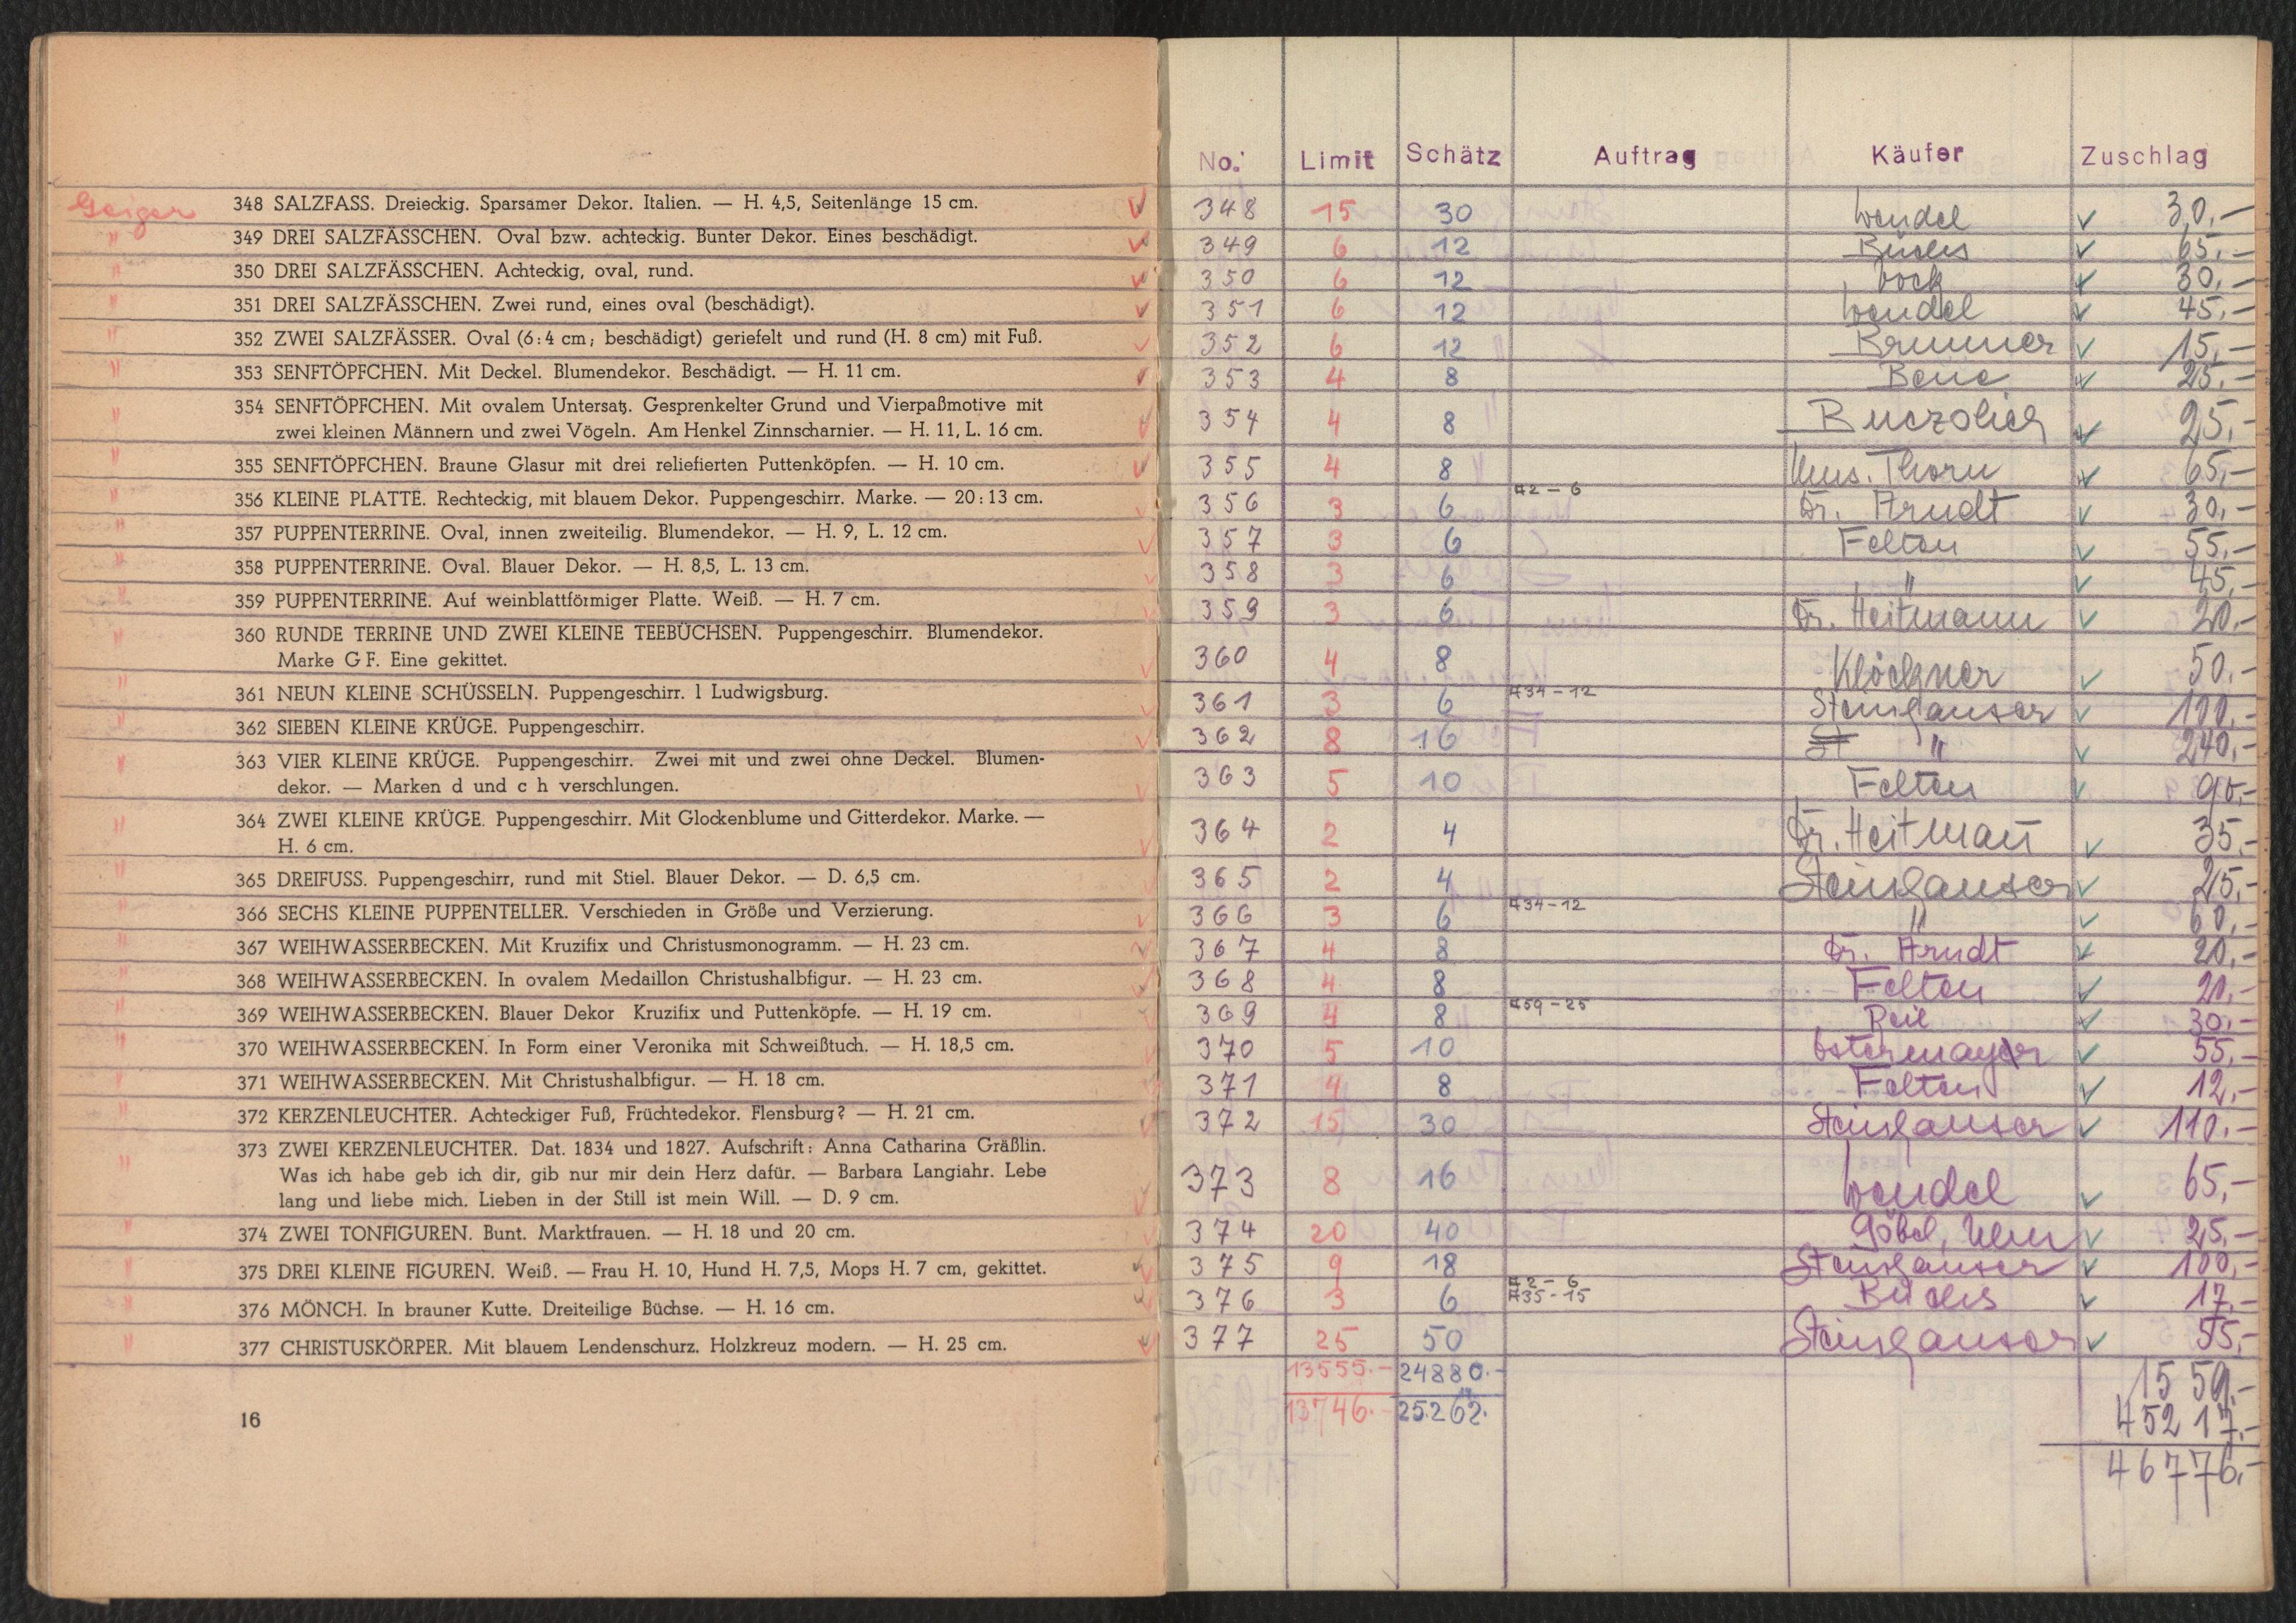 Geiger 348 SALZFASS. Dreieckig. Sparsamer Dekor. Italien. — H. 4,5, Seitenlänge 15 cm.
" 349 DREI SALZFÄSSCHEN. Oval bzw. achteckig. Bunter Dekor. Eines beschädigt.
" 350 DREI SALZFÄSSCHEN. Achteckig, oval, rund.
" 351 DREI SALZFÄSSCHEN. Zwei rund, eines oval (beschädigt).
" 352 ZWEI SALZFÄSSER. Oval (6:4 cm; beschädigt) geriefelt und rund (H. 8 cm) mit Fuß.
" 353 SENFTÖPFCHEN. Mit Deckel. Blumendekor. Beschädigt. — H. 11 cm.
" 354 SENFTÖPFCHEN. Mit ovalem Untersatz. Gesprenkelter Grund und Vierpaßmotive mit
zwei kleinen Männern und zwei Vögeln. Am Henkel Zinnscharnier. — H. 11, L. 16 cm.
" 355 SENFTÖPFCHEN. Braune Glasur mit drei reliefierten Puttenköpfen. — H. 10 cm.
" 356 KLEINE PLATTE. Rechteckig, mit blauem Dekor. Puppengeschirr. Marke. — 20:13 cm.
" 357 PUPPENTERRINE. Oval, innen zweiteilig. Blumendekor. — H. 9, L. 12 cm.
" 358 PUPPENTERRINE. Oval. Blauer Dekor. — H. 8,5, L. 13 cm.
" 359 PUPPENTERRINE. Auf weinblattförmiger Platte. Weiß. — H. 7 cm.
" 360 RUNDE TERRINE UND ZWEI KLEINE TEEBÜCHSEN. Puppengeschirr. Blumendekor.
Marke G F. Eine gekittet.
" 361 NEUN KLEINE SCHÜSSELN. Puppengeschirr. 1 Ludwigsburg.
" 362 SIEBEN KLEINE KRÜGE. Puppengeschirr.
" 363 VIER KLEINE KRÜGE. Puppengeschirr. Zwei mit und zwei ohne Deckel. Blumen-
dekor. — Marken d und c h verschlungen.
" 364 ZWEI KLEINE KRÜGE. Puppengeschirr. Mit Glockenblume und Gitterdekor. Marke. —
H. 6 cm.
" 365 DREIFUSS. Puppengeschirr, rund mit Stiel. Blauer Dekor. — D. 6,5 cm.
" 366 SECHS KLEINE PUPPENTELLER. Verschieden in Größe und Verzierung.
" 367 WEIHWASSERBECKEN. Mit Kruzifix und Christusmonogramm. — H. 23 cm.
" 368 WEIHWASSERBECKEN. In ovalem Medaillon Christushalbfigur. — H. 23 cm.
" 369 WEIHWASSERBECKEN. Blauer Dekor Kruzifix und Puttenköpfe. — H. 19 cm.
" 370 WEIHWASSERBECKEN. In Form einer Veronika mit Schweißtuch. — H. 18,5 cm.
" 371 WEIHWASSERBECKEN. Mit Christushalbfigur. — H. 18 cm.
" 372 KERZENLEUCHTER. Achteckiger Fuß, Früchtedekor. Flensburg? — H. 21 cm.
" 373 ZWEI KERZENLEUCHTER. Dat. 1834 und 1827. Aufschrift: Anna Catharina Gräßlin.
Was ich habe geb ich dir, gib nur mir dein Herz dafür. — Barbara Langiahr. Lebe
lang und liebe mich. Lieben in der Still ist mein Will. — D. 9 cm.
" 374 ZWEI TONFIGUREN. Bunt. Marktfrauen. — H. 18 und 20 cm.
" 375 DREI KLEINE FIGUREN. Weiß. — Frau H. 10, Hund H. 7,5, Mops H. 7 cm, gekittet.
" 376 MÖNCH. In brauner Kutte. Dreiteilige Büchse. — H. 16 cm.
" 377 CHRISTUSKÖRPER. Mit blauem Lendenschurz. Holzkreuz modern. — H. 25 cm.
16
No. Limit Schätz Auftrag Käufer Zuschlag
348 15 30 Wendel 30,-
349 6 12 65,-
350 6 12 Bock 30,-
351 6 12 Wendel 45,-
352 6 12 Brunner 15,-
353 4 8 25,-
354 4 8 Ruczolich 25,-
355 4 8 Mus. Thorn 65,-
356 3 6 A2-6 Dr. Arndt 30,-
357 3 6 Felten 55,-
358 3 6 " 45,-
359 3 6 Dr. Heitmann 20,-
360 4 8 Klöckner 50,-
361 3 6 A34-12 Steinhauser 100,-
362 8 16 St " 240,-
363 5 10 Felten 90,-
364 2 4 Dr. Heitman̄ 35,-
365 2 4 Steinhauser 25,-
366 3 6 A34-12 " 60,-
367 4 8 Dr. Arndt 20,-
368 4 8 Felten 20,-
369 4 8 A59-25 Reil 30,-
370 5 10 Ostermayer 55,-
371 4 8 Felten 12,-
372 15 30 Steinhauser 110,-
373 8 16 Wendel 65,-
374 20 40 Göbel, Ulm 25,-
375 9 18 Steinhauser 100,-
376 3 6 A2-6 A35-15 17,-
377 25 50 Steinhauser 55,-
13555.- 24880.- 1559,-
13746.- 25.262. 45217,-
46776,-